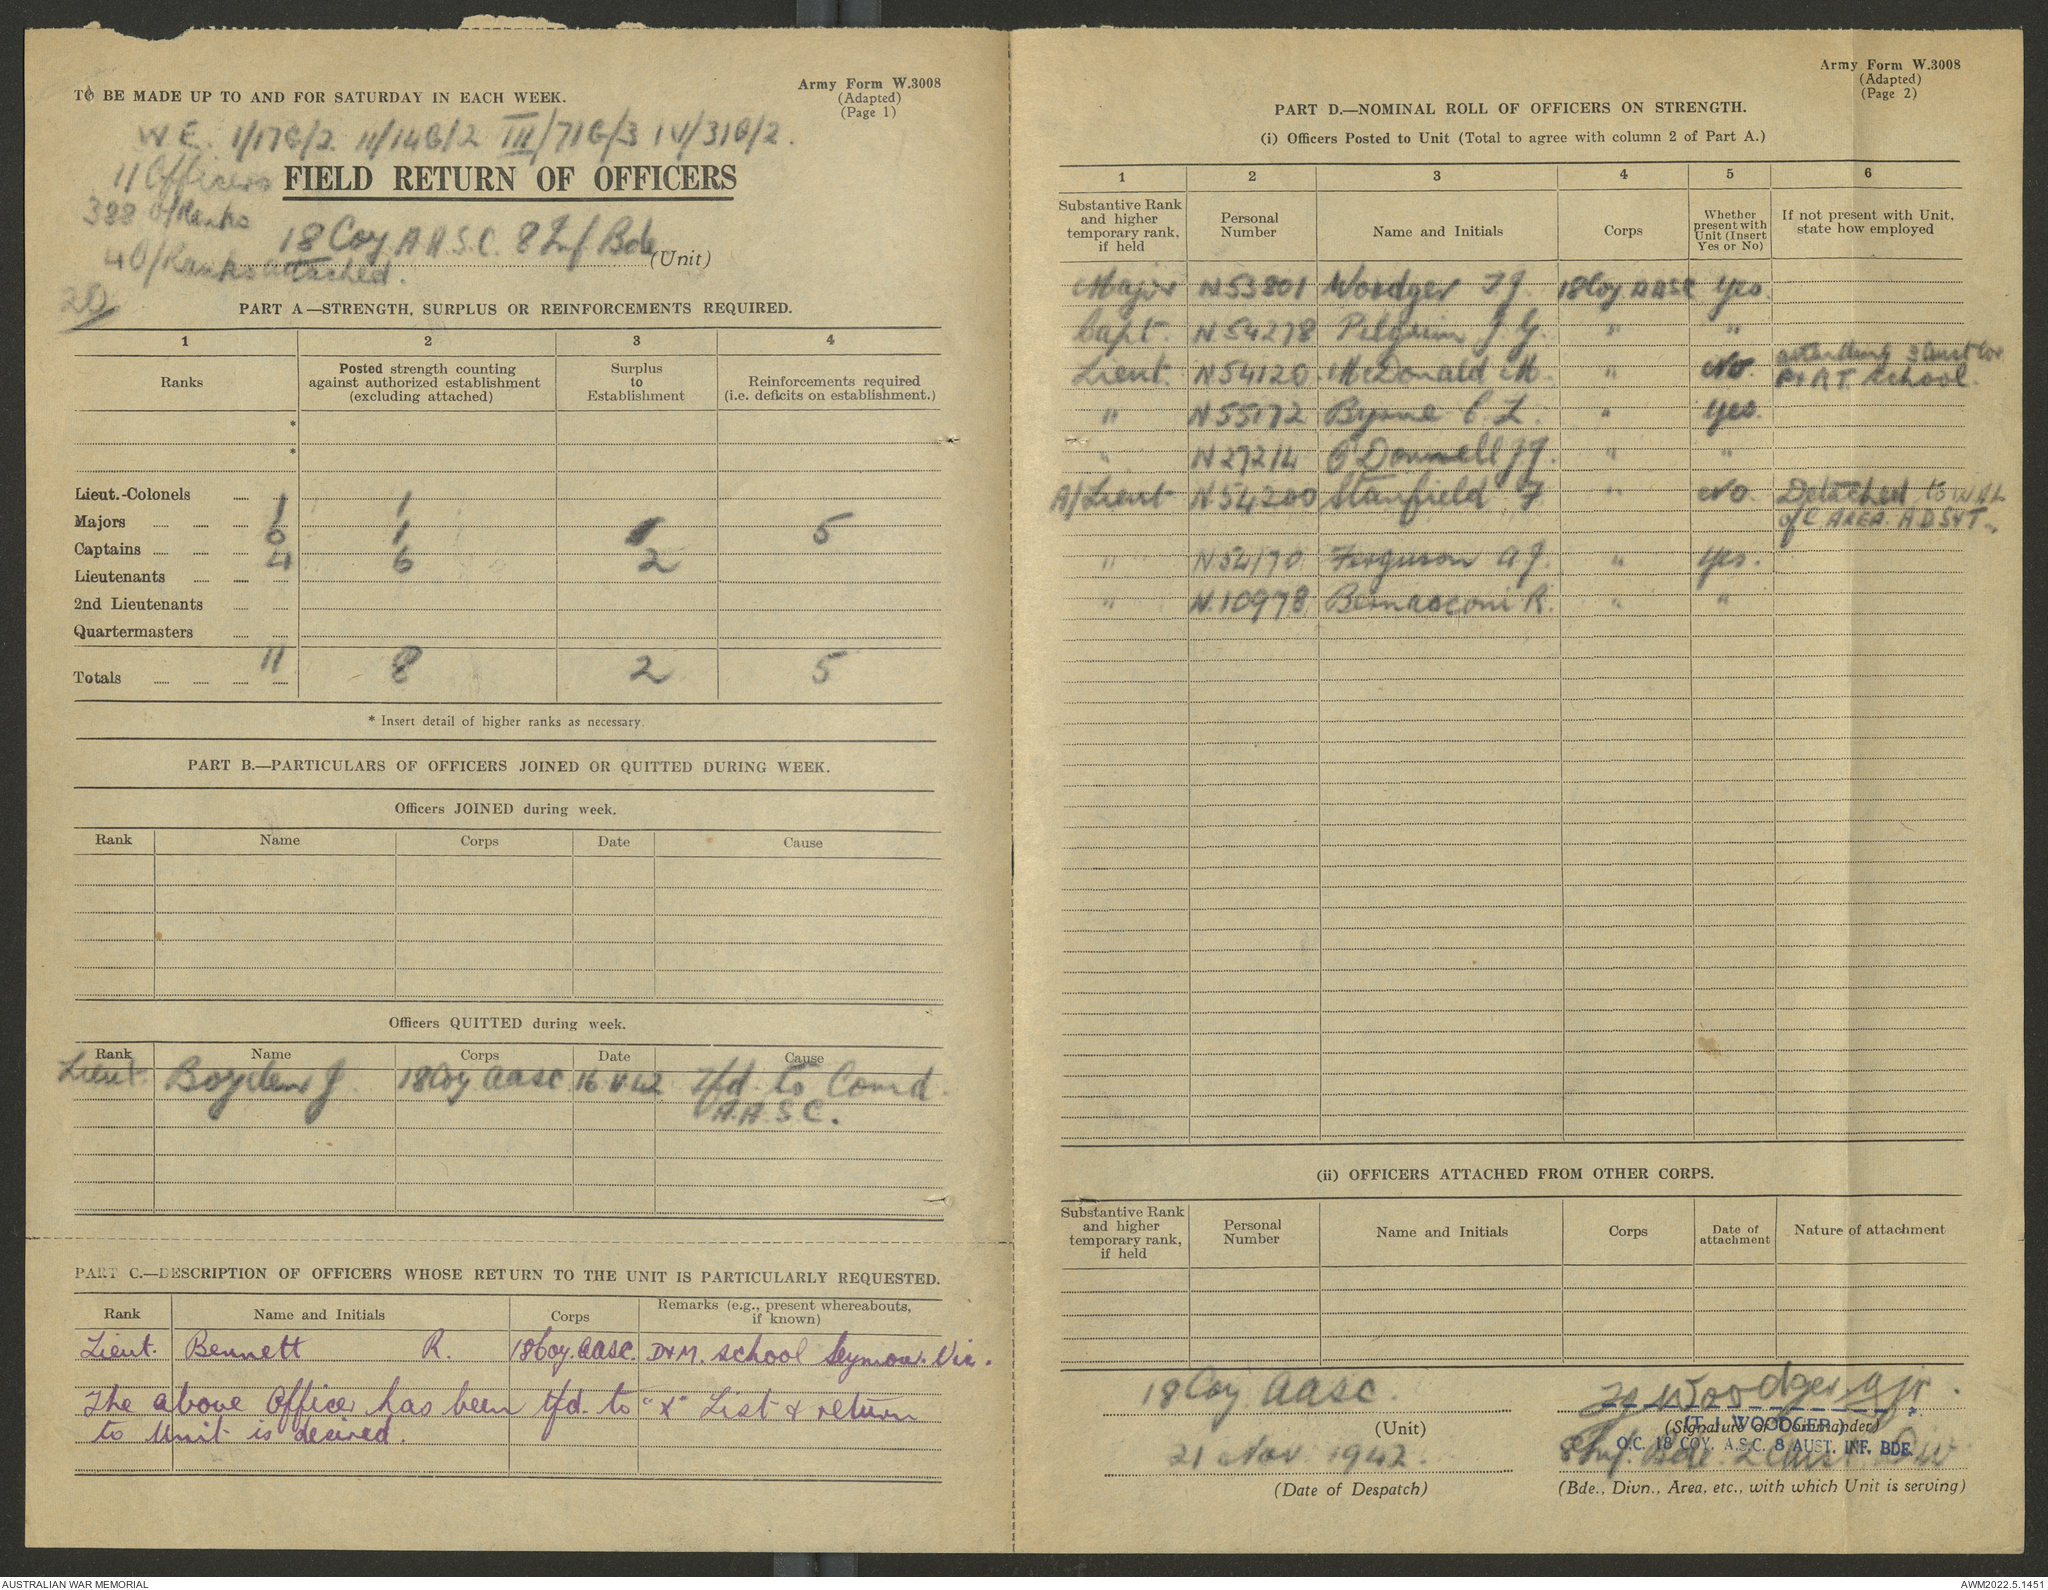 TO BE MADE UP TO AND FOR SATURDAY IN EACH WEEK.
Army Form W.3008
(Adapted)
(Page 1)
W.E. 1/17G/2. 11/14G/2 III/71G/3 IV/31G/2.
11 Officers
FIELD RETURN OF OFFICERS
388 O/Ranks
18 Coy A.A.S.C. 8 Inf Bde (Unit)
4 O/Ranks attached.
PART A—STRENGTH, SURPLUS OR REINFORCEMENTS REQUIRED.
1 2 3 4
Ranks
Posted strength counting against authorized establishment (excluding attached)
Surplus to Establishment
Reinforcements required (i.e. deficits on establishment.)
*
*
Lieut.-Colonels
1 1
Majors
6 1 5
Captains
4 6 2
Lieutenants
2nd Lieutenants
Quartermasters
Totals 11 8 2 5
* Insert detail of higher ranks as necessary.
PART B.—PARTICULARS OF OFFICERS JOINED OR QUITTED DURING WEEK.
Officers JOINED during week.
Rank Name Corps Date Cause
Officers QUITTED during week.
Rank Name Corps Date Cause
Lieut. Boyden J. 18 Coy AASC 16 11 42 Tfd. to Comd.
A.A.S.C.
PART C.—DESCRIPTION OF OFFICERS WHOSE RETURN TO THE UNIT IS PARTICULARLY REQUESTED.
Rank Name and Initials Corps Remarks (e.g., present whereabouts, if known)
Lieut. Bennett R. 18 Coy. AASC. D&M. School Seymour. Vic.
The above Officer has been tfd. to "X" List & return
to Unit is desired.
Army Form W.3008
(Adapted)
(Page 2)
PART D.—NOMINAL ROLL OF OFFICERS ON STRENGTH.
(i) Officers Posted to Unit (Total to agree with column 2 of Part A.)
1 2 3 4 5 6
Substantive Rank and higher temporary rank, if held
Personal Number
Name and Initials
Corps
Whether present with Unit (Insert Yes or No)
If not present with Unit, state how employed
Major N53801 Woodger T J. 18 Coy. AASC Yes.
Capt. N54278 Pilgrim J. G. " "
Lieut. N54120. McDonald M. " No. attending
School.
" N55172 Byrne C. L. " Yes.
" N27214 O'Donnell J J. " "
A/Lieut N54200 Stanfield F " No. Detached to W &L
of C AREA. A D S&T.
" N54170 Ferguson A J. " Yes.
" N.10978 Bernasconi R. " "
(ii) OFFICERS ATTACHED FROM OTHER CORPS.
Substantive Rank and higher temporary rank, if held
Personal Number
Name and Initials
Corps
Date of attachment
Nature of attachment
18 Coy AASC.
(Unit)
T J Woodger Mjr.
(T. J. WOODGER)
(Signature of Commander)
O.C. 18 COY. A.S.C. 8 AUST. INF. BDE.
21 Nov. 1942.
(Date of Despatch)
8 Inf. Bde. 2 Aust. Div
(Bde., Divn., Area, etc., with which Unit is serving)
AUSTRALIAN WAR MEMORIAL
AWM2022.5.1451